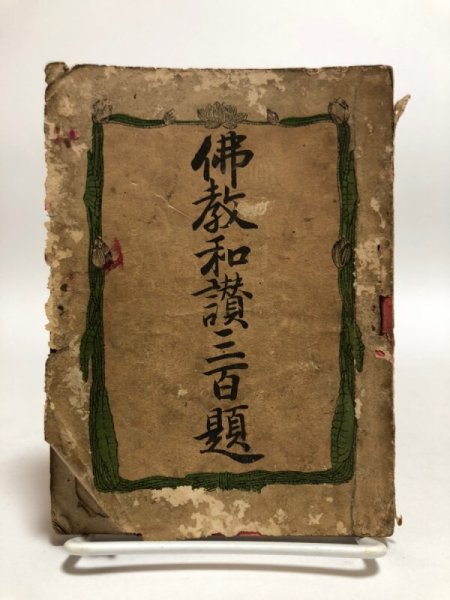 佛教和讃三百題